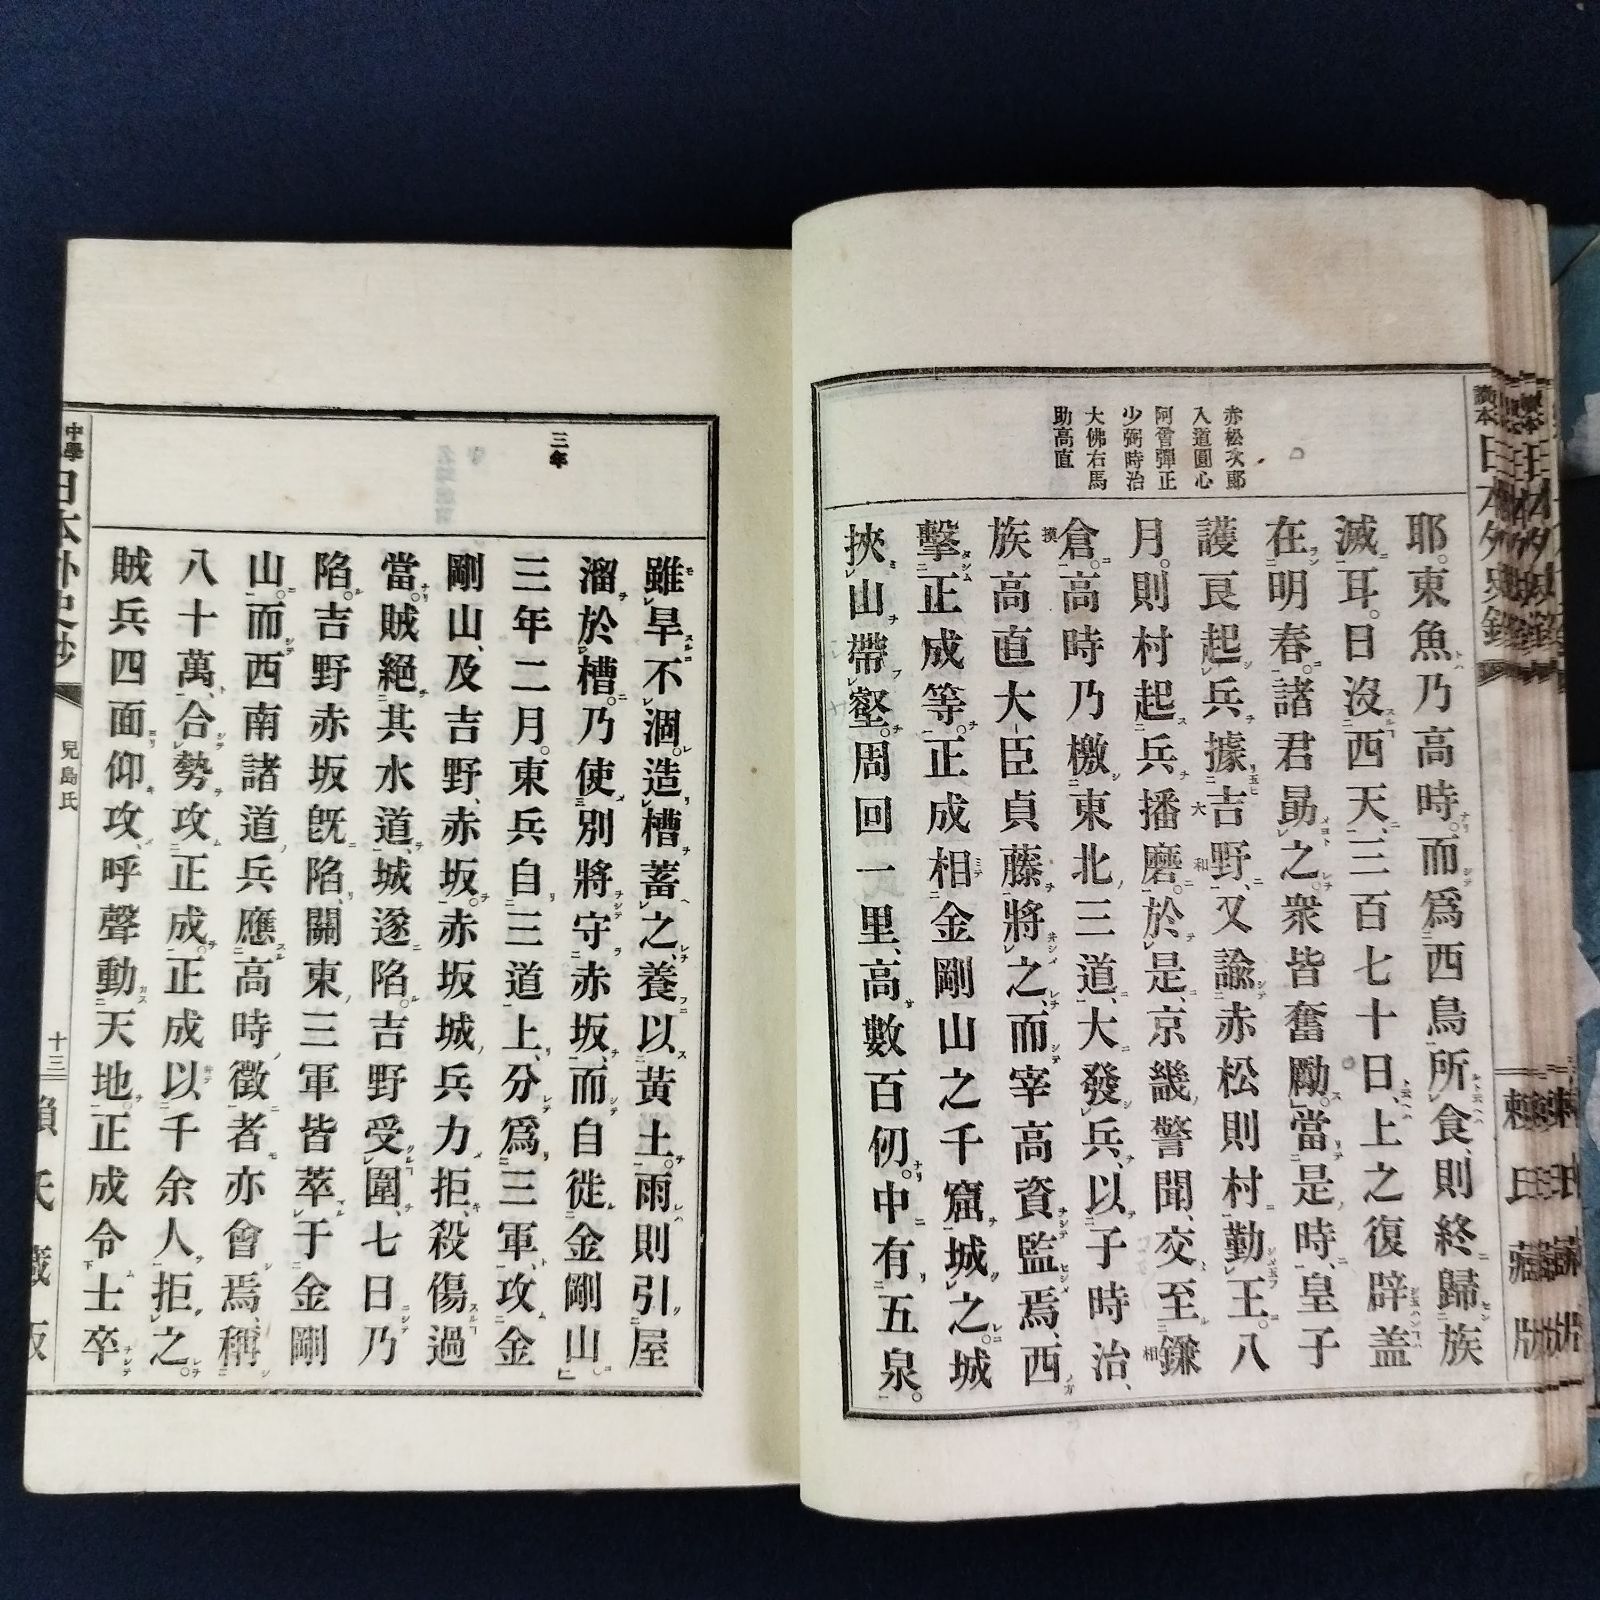 赤松次郎
入道圓心
阿曾彈正
少弼時治
大佛右馬
助高直
耶。東魚乃高時。而爲西鳥所食、則終歸族
滅耳。日沒西天、三百七十日、上之復辟盖
在明春。諸君勗之。衆皆奮勵。當是時、皇子
護良起兵據吉野、又諭赤松則村勤王。八
月。則村起兵播磨。於是、京畿警聞、交至鎌
倉。高時乃檄東北三道、大發兵、以子時治、
族高直大臣貞藤將之、而宰高資監焉、西
擊正成等。正成相金剛山之千窟城之。城
挾山帶壑。周回一里、高數百仞。中有五泉。
三年
雖旱不涸。造槽蓄之、養以黃土。雨則引屋
溜於槽。乃使別將守赤坂、而自徙金剛山。」
三年二月。東兵自三道上、分爲三軍、攻金
剛山、及吉野、赤坂。赤坂城兵力拒、殺傷過
當。賊絕其水道、城遂陷。吉野受圍、七日乃
陷。吉野赤坂旣陷、關東三軍皆萃于金剛
山。而西南諸道兵應高時徵者亦會焉、稱
八十萬、合勢攻正成。正成以千余人拒之。
賊兵四面仰攻、呼聲動天地。正成令士卒
中學
日本外史鈔
兒島氏
十三
賴氏藏版